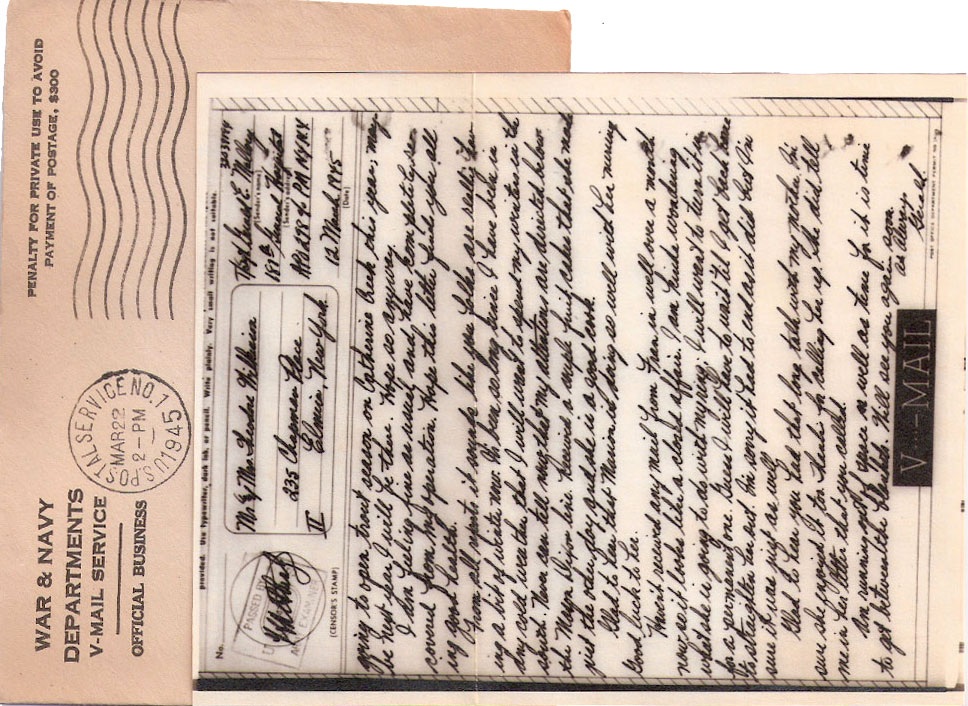 PENALTY FOR PRIVATE USE TO AVOID
PAYMENT OF POSTAGE, $300
WAR & NAVY
DEPARTMENTS
V-MAIL SERVICE
OFFICIAL BUSINESS
U.S. POSTAL SERVICE NO. 1
MAR 22
2-PM
1945
provided. Use typewriter, dark ink, or pencil. Write plainly. Very small writing is not suitable.
No.
PASSED BY
ARMY EXAMINER
(CENSOR'S STAMP)
Mr & Mrs
235 Place
Elmira, New York
II
(Sender's name)
(Sender's address)
APO 689 PM NY NY
12 March 1945
(Date)
going to open trout season on Catharine Creek this year; may
be next year I will be there. Hope so anyway.
I am feeling fine as usual and have completely re-
covered from my operation. Hope this letter finds you all
in good health.
From all reports it sounds like you folks are really hav-
ing a bit of winter now. It's been so long since I have been in
any cold weather that I will want to spend my winters in the
south. I can even tell now that my attentions are directed below
the Mason Dixon line. Xavier is a swell fruit cake that she made
just the other day and she is a good cook.
Glad to hear that Marian is doing so well with her nursing
Good luck to her.
Haven't received any mail from Fran in well above a month
now so it looks like a closed affair. I am kinda wondering
what she is going to do with my ring. I will want to have it
for a permanent one. Guess I will have to wait til I get back home
to straiten her out. I'm sorry it had to end as it did but I'm
sure it is just as well.
Glad to hear you had that long talk with my mother. I'm
sure she enjoyed it too. Thanks for calling her up. She did tell
me in her letter that you called.
Am running out of space as well as time for it is time
to get between the blankets. Will see you again soon
As always
V···-MAIL
POST OFFICE DEPARTMENT PERMIT NO.